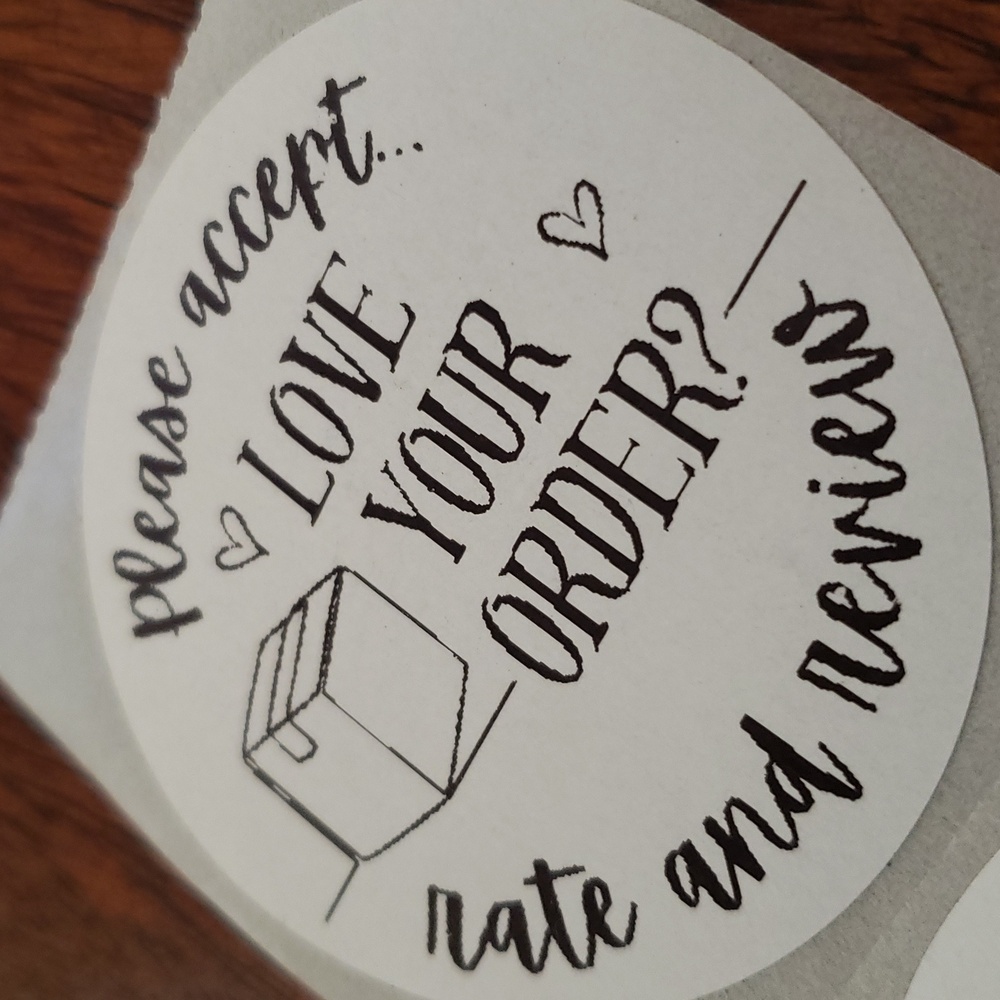 please accept...
LOVE
YOUR
ORDER?
rate and review